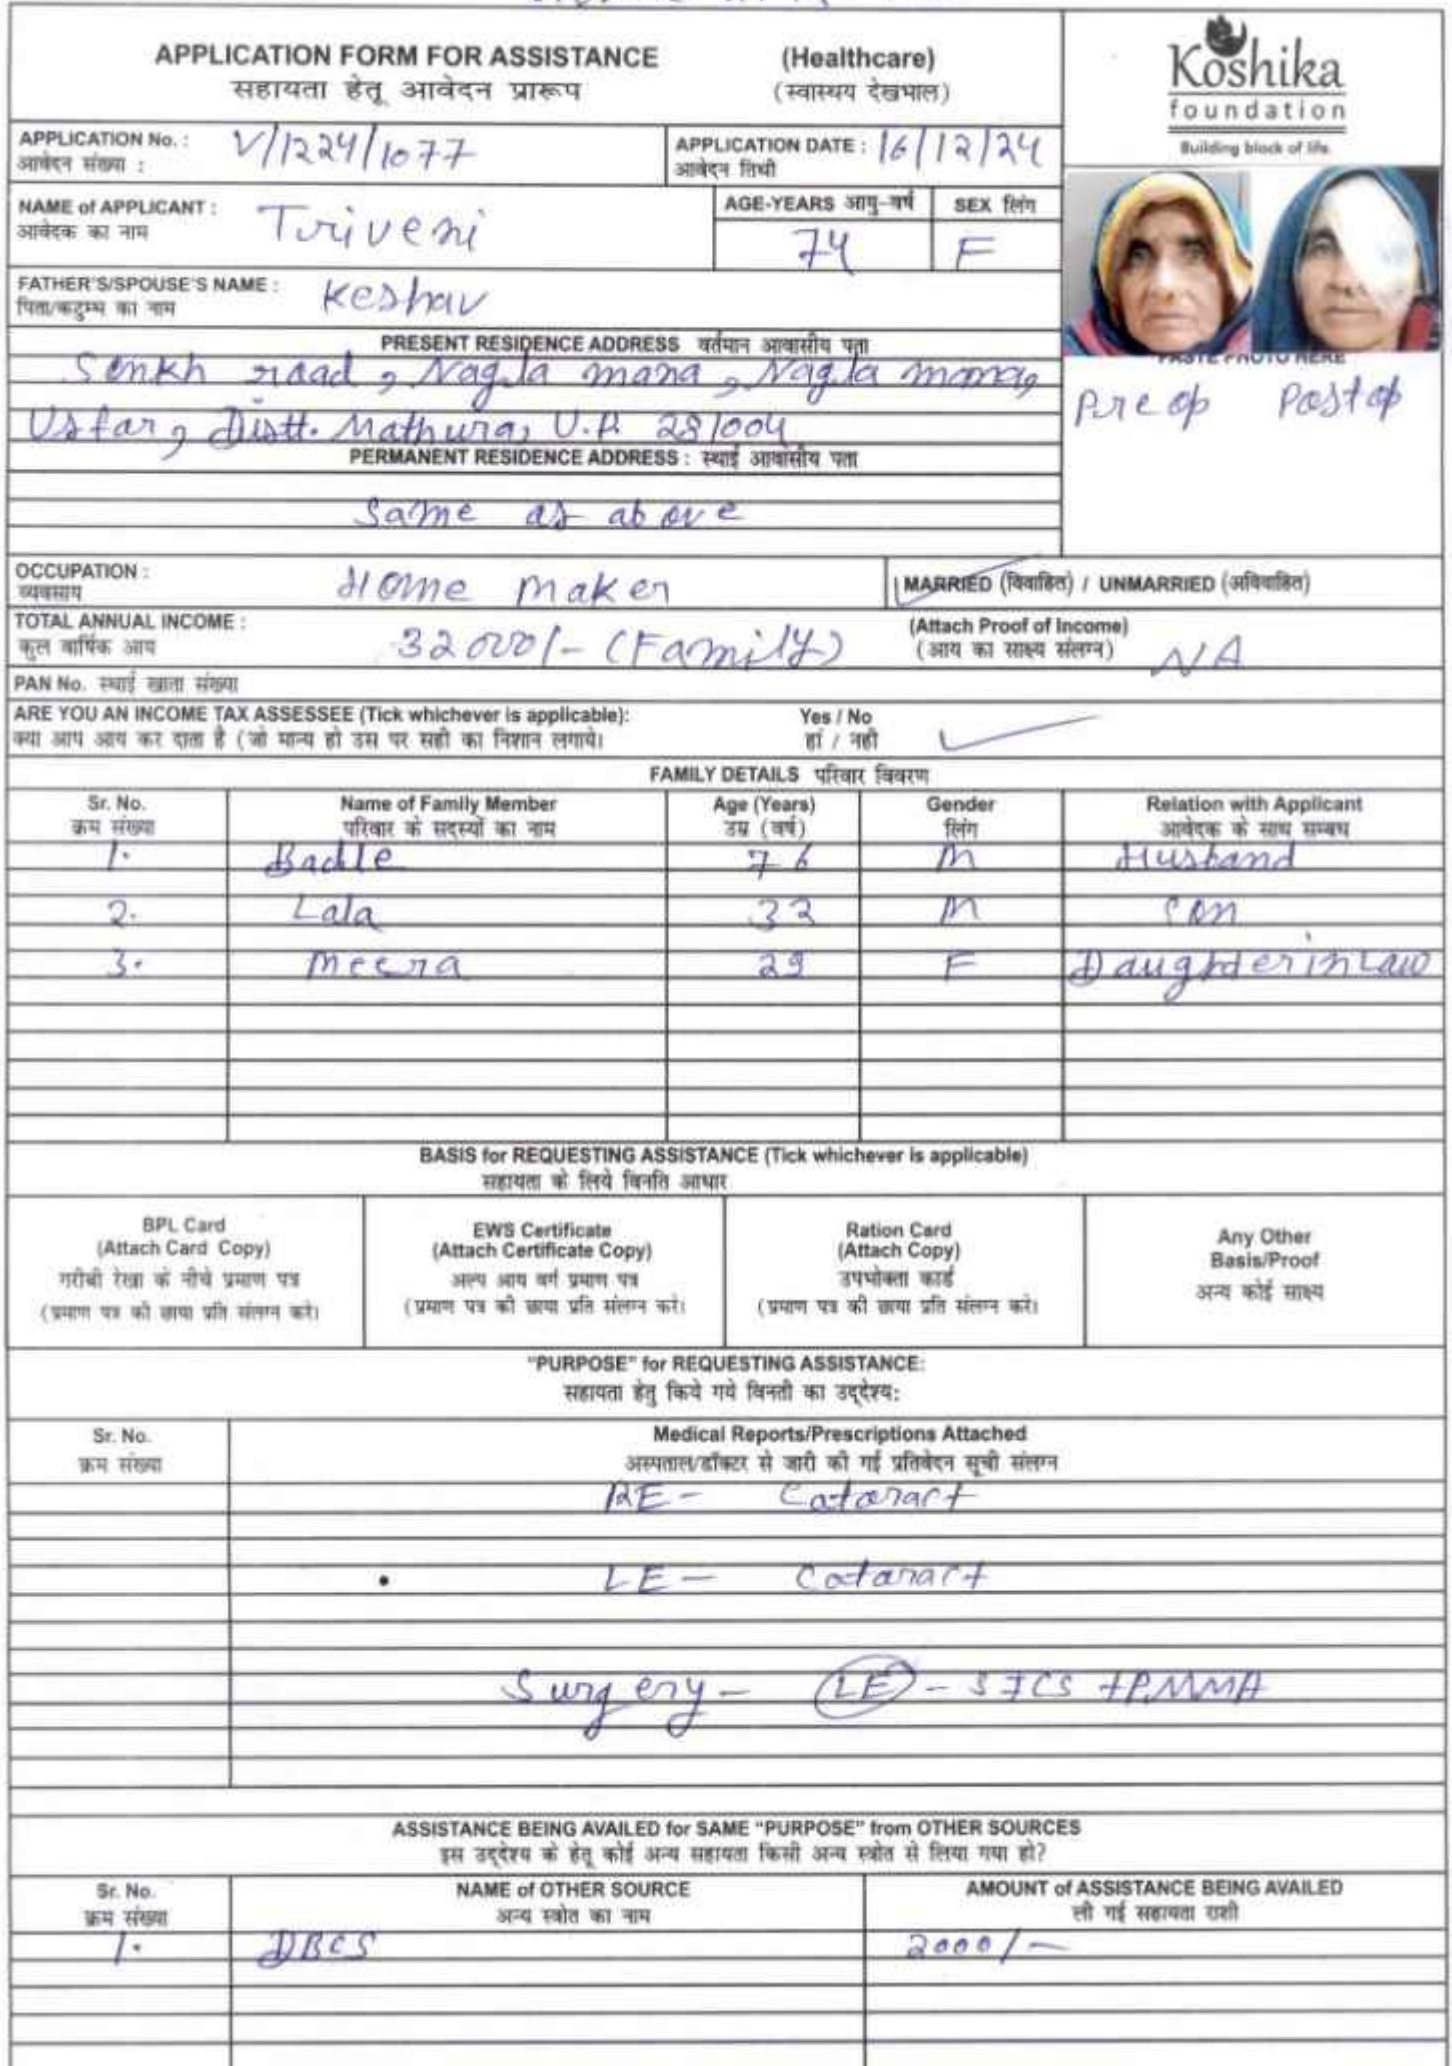 APPLICATION FORM FOR ASSISTANCE (Healthcare)
सहायता हेतू आवेदन प्रारूप (स्वास्थय देखभाल)
Koshika
foundation
Building block of life.
APPLICATION No. : V/1224/1077 APPLICATION DATE : 16/12/24
आवेदन संख्या : आवेदन तिथी
NAME of APPLICANT : Triveni AGE-YEARS आयु-वर्ष SEX लिंग
आवेदक का नाम 74 F
FATHER'S/SPOUSE'S NAME : Keshav
पिता/कटुम्ब का नाम
PRESENT RESIDENCE ADDRESS वर्तमान आवासीय पता
PASTE PHOTO HERE
Sonkh road, Nagla mana, Nagla mana,
Pre op Post op
Usfar, Distt. Mathura, U.P. 281004
PERMANENT RESIDENCE ADDRESS : स्थाई आवासीय पता
Same as above
OCCUPATION : Home maker MARRIED (विवाहित) / UNMARRIED (अविवाहित)
व्यवसाय
TOTAL ANNUAL INCOME : 32000/- (Family) (Attach Proof of Income)
कुल वार्षिक आय (आय का साक्ष्य संलग्न) NA
PAN No. स्थाई खाता संख्या
ARE YOU AN INCOME TAX ASSESSEE (Tick whichever is applicable): Yes / No
क्या आप आय कर दाता है (जो मान्य हो उस पर सही का निशान लगाये। हां / नही
FAMILY DETAILS परिवार विवरण
Sr. No. Name of Family Member Age (Years) Gender Relation with Applicant
क्रम संख्या परिवार के सदस्यों का नाम उम्र (वर्ष) लिंग आवेदक के साथ सम्बध
1. Badle 76 M Husband
2. Lala 32 M Son
3. Meera 29 F Daughter in Law
BASIS for REQUESTING ASSISTANCE (Tick whichever is applicable)
सहायता के लिये विनति आधार
BPL Card
(Attach Card Copy)
गरीबी रेखा के नीचे प्रमाण पत्र
(प्रमाण पत्र की छाया प्रति संलग्न करे।
EWS Certificate
(Attach Certificate Copy)
अल्प आय वर्ग प्रमाण पत्र
(प्रमाण पत्र की छाया प्रति संलग्न करे।
Ration Card
(Attach Copy)
उपभोक्ता कार्ड
(प्रमाण पत्र की छाया प्रति संलग्न करे।
Any Other
Basis/Proof
अन्य कोई साक्ष्य
"PURPOSE" for REQUESTING ASSISTANCE:
सहायता हेतु किये गये विनती का उद्देश्य:
Sr. No. Medical Reports/Prescriptions Attached
क्रम संख्या अस्पताल/डॉक्टर से जारी की गई प्रतिवेदन सूची संलग्न
RE - Cataract
LE - Cataract
Surgery - LE - SICS + PMMA
ASSISTANCE BEING AVAILED for SAME "PURPOSE" from OTHER SOURCES
इस उद्देश्य के हेतू कोई अन्य सहायता किसी अन्य स्त्रोत से लिया गया हो?
Sr. No. NAME of OTHER SOURCE AMOUNT of ASSISTANCE BEING AVAILED
क्रम संख्या अन्य स्त्रोत का नाम ली गई सहायता राशी
1. DBCS 2000/-